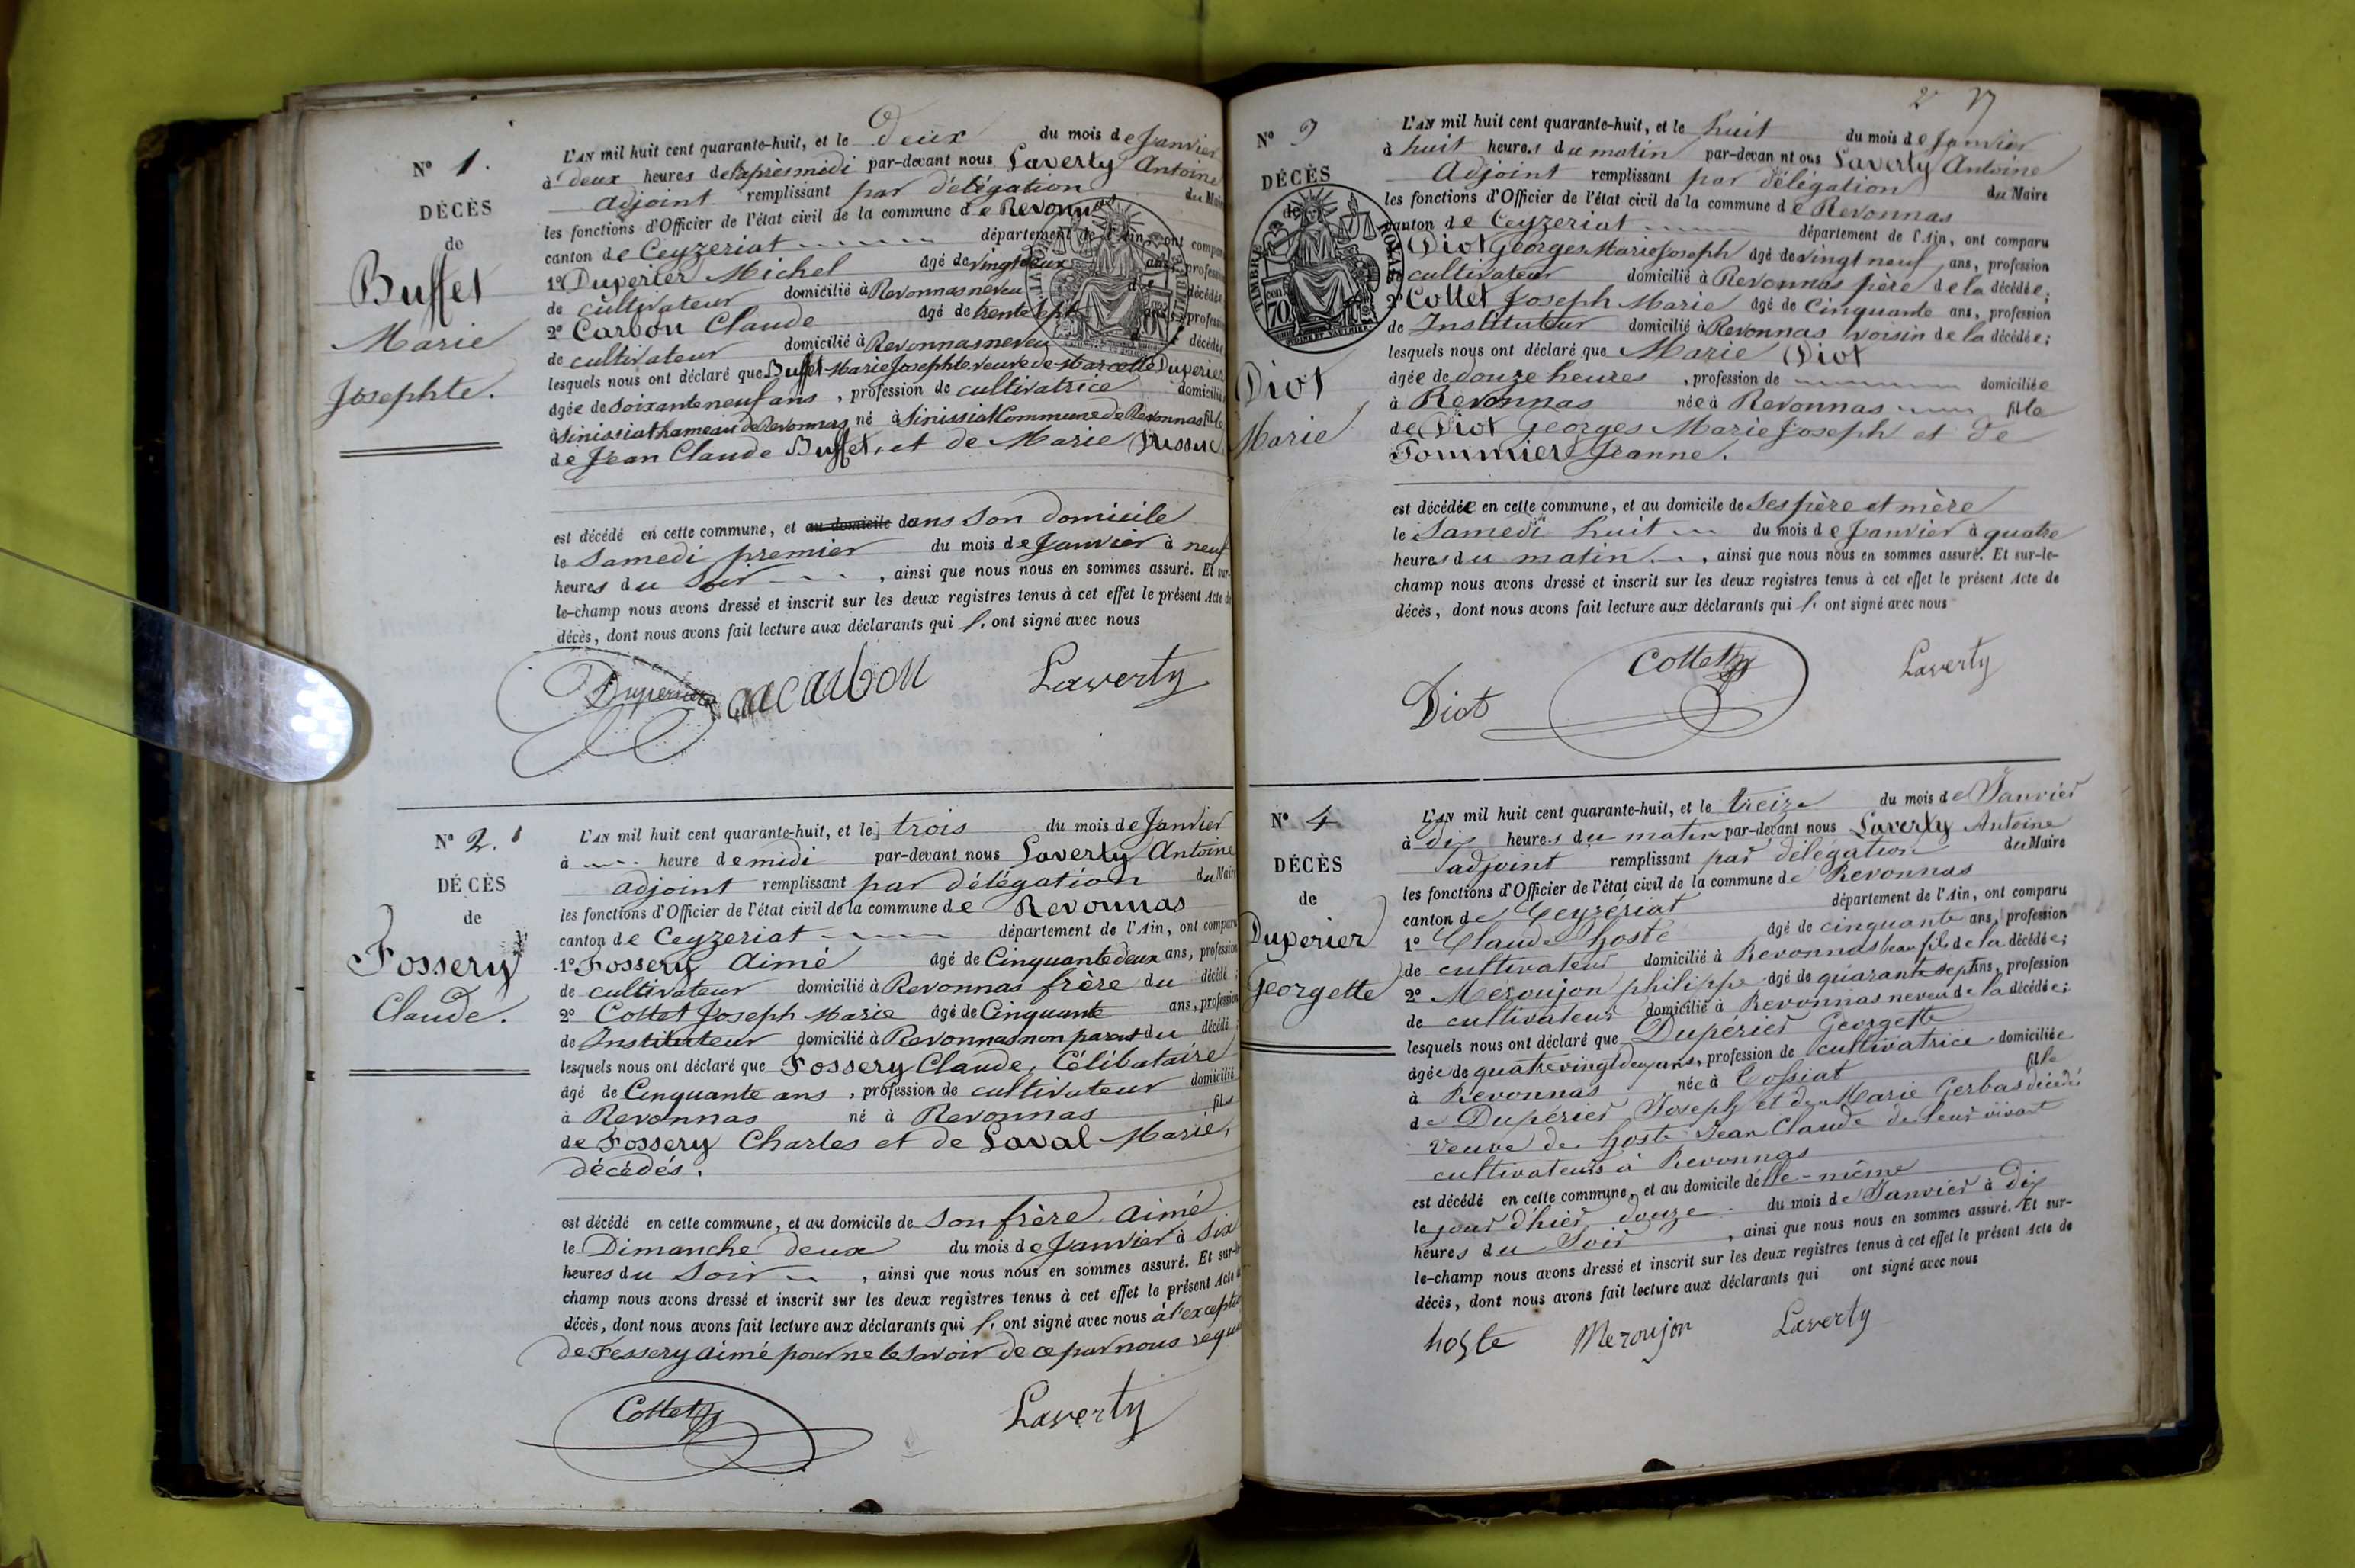 N° 1.
DÉCÈS
de
Buffet
Marie
Josephte.
L'AN mil huit cent quarante-huit, et le Deux du mois de Janvier
à deux heures de l'après midi par-devant nous Laverty Antoine
adjoint remplissant par délégation du Maire
les fonctions d'Officier de l'état civil de la commune de Revonnas
canton de Ceyzeriat département de l'Ain, ont comparu
1° Duperier Michel âgé de vingt deux ans, profession
de cultivateur domicilié à Revonnas neveu de décédée
2° Carbon Claude âgé de trente sept ans, profession
de cultivateur domicilié à Revonnas neveu décédée
lesquels nous ont déclaré que Buffet Marie Josephte veuve de Marcelle Duperier
âgée de soixante neuf ans, profession de cultivatrice domiciliée
à Sinissiat hameau de Revonnas né à Sinissiat Commune de Revonnas fille
de Jean Claude Buffet, et de Marie
est décédé en cette commune, et au domicile dans son domicile
le Samedi premier du mois de Janvier à neuf
heures du soir, ainsi que nous nous en sommes assuré. Et sur-
le-champ nous avons dressé et inscrit sur les deux registres tenus à cet effet le présent Acte de
décès, dont nous avons fait lecture aux déclarants qui l' ont signé avec nous
Duperier carbon Laverty
N° 2.
DÉCÈS
de
Fossery
Claude.
L'AN mil huit cent quarante-huit, et le trois du mois de Janvier
à heure de midi par-devant nous Laverty Antoine
adjoint remplissant par délégation du Maire
les fonctions d'Officier de l'état civil de la commune de Revonnas
canton de Ceyzeriat département de l'Ain, ont comparu
1° Fossery Aimé âgé de Cinquante deux ans, profession
de cultivateur domicilié à Revonnas frère du décédé
2° Collet Joseph Marie âgé de Cinquante ans, profession
de Instituteur domicilié à Revonnas non parent du décédé
lesquels nous ont déclaré que Fossery Claude, Célibataire
âgé de Cinquante ans, profession de cultivateur domicilié
à Revonnas né à Revonnas fils
de Fossery Charles et de Laval Marie,
décédés.
est décédé en cette commune, et au domicile de son frère aimé
le Dimanche deux du mois de Janvier à six
heures du soir, ainsi que nous nous en sommes assuré. Et sur-le-
champ nous avons dressé et inscrit sur les deux registres tenus à cet effet le présent Acte de
décès, dont nous avons fait lecture aux déclarants qui l' ont signé avec nous à l'exception
de Fessery aimé pour ne le savoir de ce par nous requis
Collet Laverty
N° 3
DÉCÈS
de
Diot
Marie
L'AN mil huit cent quarante-huit, et le huit du mois de Janvier
à huit heures du matin par-devan nt ous Laverty Antoine
Adjoint remplissant par délégation du Maire
les fonctions d'Officier de l'état civil de la commune de Revonnas
canton de Ceyzeriat département de l'Ain, ont comparu
1° Diot Georges Marie Joseph âgé de vingt neuf ans, profession
de cultivateur domicilié à Revonnas père de la décédée;
2° Collet Joseph Marie âgé de Cinquante ans, profession
de Instituteur domicilié à Revonnas voisin de la décédée;
lesquels nous ont déclaré que Marie Diot
âgée de douze heures, profession de domiciliée
à Revonnas née à Revonnas fille
de Diot Georges Marie Joseph et de
Tommier Jeanne.
est décédée en cette commune, et au domicile de ses père et mère
le Samedi huit du mois de Janvier à quatre
heures du matin, ainsi que nous nous en sommes assuré. Et sur-le-
champ nous avons dressé et inscrit sur les deux registres tenus à cet effet le présent Acte de
décès, dont nous avons fait lecture aux déclarants qui l' ont signé avec nous
Diot Collet Laverty
N° 4
DÉCÈS
de
Duperier
Georgette
L'AN mil huit cent quarante-huit, et le treize du mois de Janvier
à dix heures du matin par-devant nous Laverty Antoine
adjoint remplissant par délégation du Maire
les fonctions d'Officier de l'état civil de la commune de Revonnas
canton de Ceyzériat département de l'Ain, ont comparu
1° Claude hoste âgé de cinquante ans, profession
de cultivateur domicilié à Revonnas beau fils de la décédée;
2° Meroujon philippe âgé de quarante sept ans, profession
de cultivateur domicilié à Revonnas neveu de la décédée;
lesquels nous ont déclaré que Dupérier Georgette
âgée de quatre vingt deux ans, profession de cultivatrice domiciliée
à Revonnas née à Tossiat fille
de Dupérier Joseph et de Marie Gerbas décédés
veuve de hoste Jean Claude de leur vivant
cultivateurs à Revonnas
est décédé en cette commune, et au domicile d'elle-même
le jour d'hier douze du mois de Janvier à dix
heures du soir, ainsi que nous nous en sommes assuré. Et sur-
le-champ nous avons dressé et inscrit sur les deux registres tenus à cet effet le présent Acte de
décès, dont nous avons fait lecture aux déclarants qui ont signé avec nous
hoste Meroujon Laverty